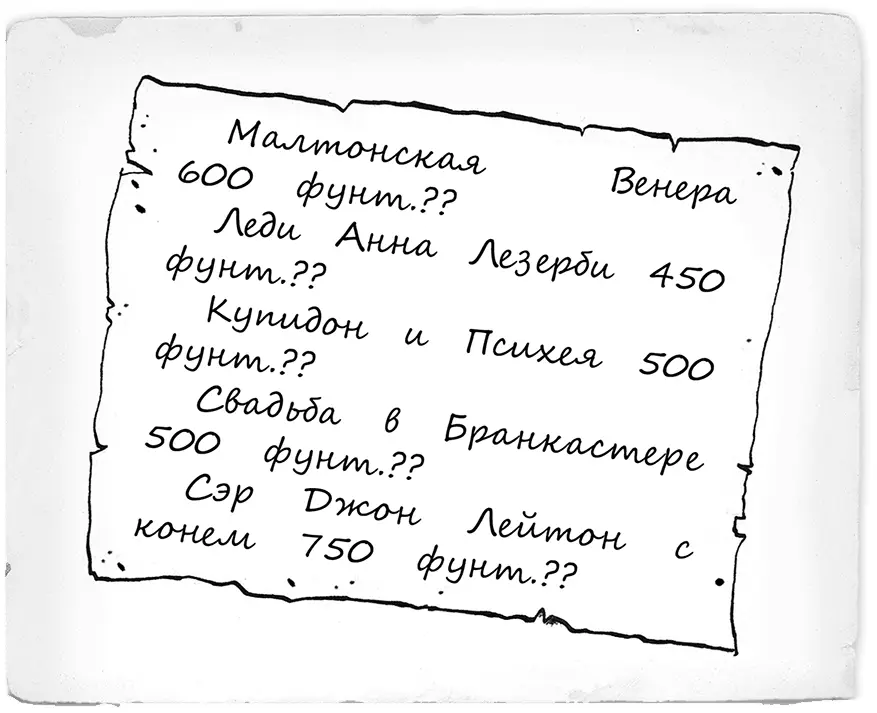 Малтонская Венера
600 фунт.??
Леди Анна Лезерби 450
фунт.??
Купидон и Психея 500
фунт.??
Свадьба в Бранкастере
500 фунт.??
Сэр Джон Лейтон с
конем 750 фунт.??